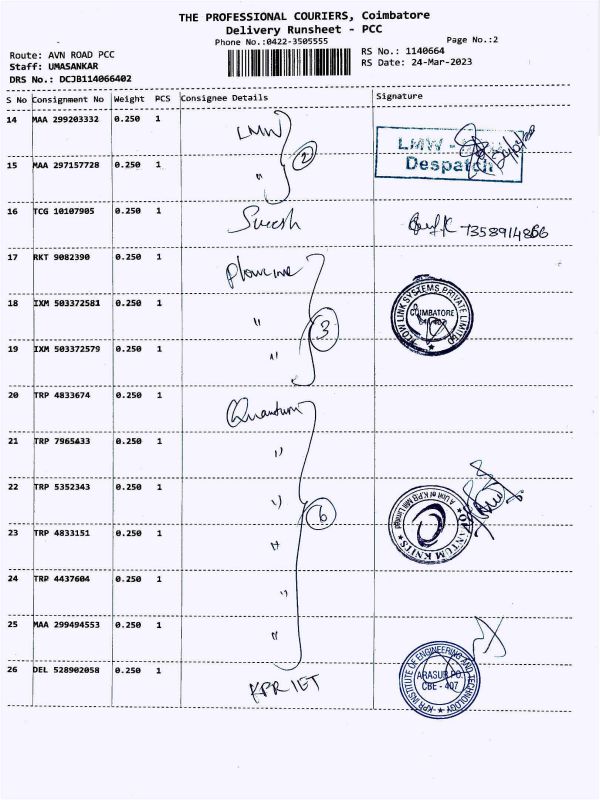 THE PROFESSIONAL COURIERS, Coimbatore
Delivery Runsheet - PCC
Phone No.:0422-3505555
Page No.:2
Route: AVN ROAD PCC
RS No.: 1140664
Staff: UMASANKAR
RS Date: 24-Mar-2023
DRS No.: DCJB114066402
S No Consignment No Weight PCS Consignee Details Signature
14 MAA 299203332 0.250 1 LMW
2
LMW -
Despatch
15 MAA 297157728 0.250 1 "
16 TCG 10107905 0.250 1 Suresh 7358914866
17 RKT 9082390 0.250 1
18 IXM 503372581 0.250 1 "
3
FLOW LINK SYSTEMS PRIVATE LIMITED
COIMBATORE
19 IXM 503372579 0.250 1 "
20 TRP 4833674 0.250 1 Quantum
21 TRP 7965433 0.250 1 "
22 TRP 5352343 0.250 1 "
6
A Unit of KPR Mill Limited
QUANTUM KNITS
23 TRP 4833151 0.250 1 "
24 TRP 4437604 0.250 1 "
25 MAA 299494553 0.250 1 "
26 DEL 528902058 0.250 1 KPR IET
KPR INSTITUTE OF ENGINEERING AND TECHNOLOGY
ARASUR PO.
CBE - 407